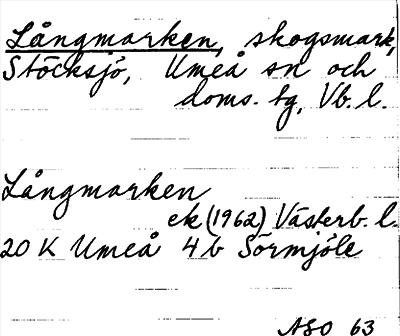 Långmarken, skogsmark,
Stöcksjö, Umeå sn och
doms. tg, Vb. l.
Långmarken
ek (1962) Västerb. l.
20 K Umeå 4 b Sörmjöle
ASO 63